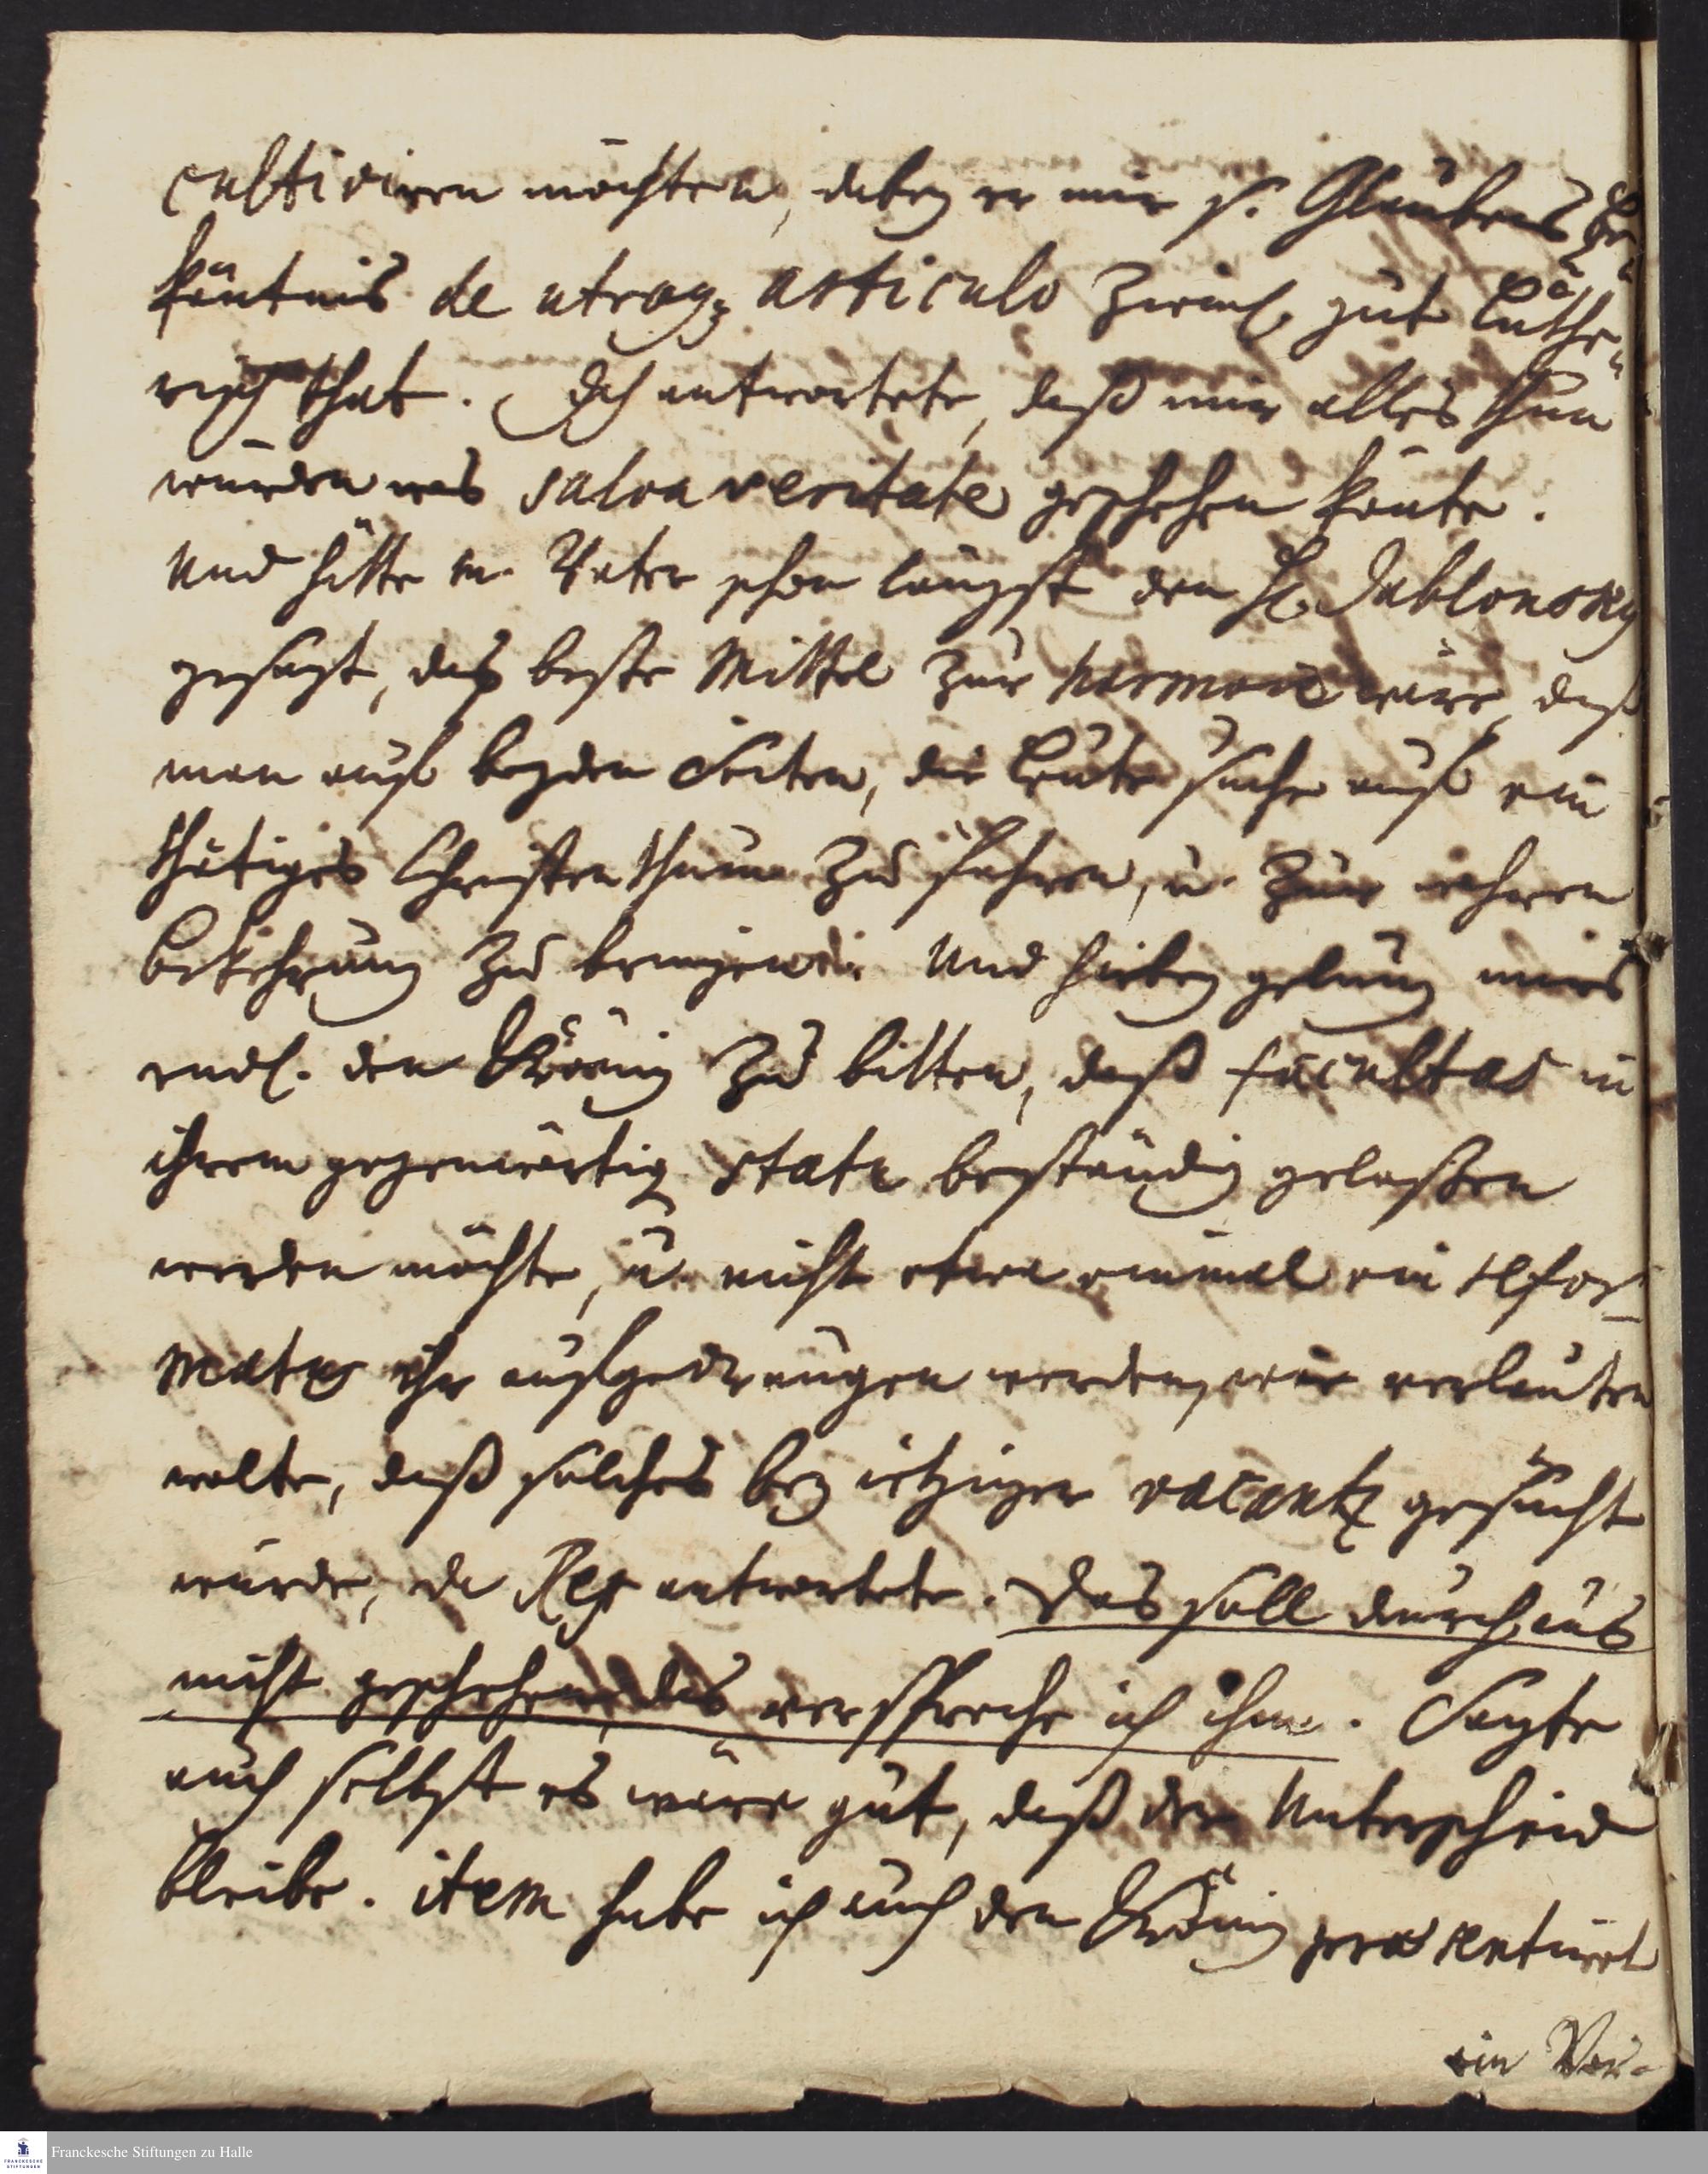 cultiviren möchten, dabey er mir s. Glaubens Be-
käntnis de utroq; articulo zieml. gut Luthe-
risch that. Ich antwortete, daß wir alles thun
würden was salva veritate geschehen könte.
Und hätte m. Vater schon längst den H. Jablonsky
gesagt, das beste Mittel zur harmonie wäre, daß
man auf beyden Seiten, die Leute suche auf ein
thätiges Christenthum zu führen, u. zur wahren
Bekehrung zu bringen. Und hiebey gelung mirs
endl. den König zu bitten, daß facultas in
ihrem gegenwärtig statu beständig gelaßen
werden möchte, u. nicht etwa einmal ein refor-
matus ihr aufgedrungen werden, wie verlauten
wolte, daß solches bey itziger vacantz gesucht
würde, da Rex antwortete. Das soll durchaus
nicht geschehen, das verspreche ich ihm. Sagte
auch selbst es wäre gut, daß der Unterscheid
bleibe. item habe ich auch den König præsentirt
ein Ver-
Franckesche Stiftungen zu Halle